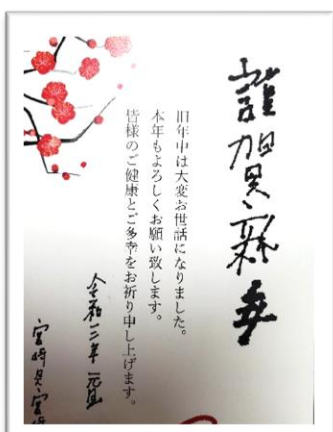 謹賀新年
旧年中は大変お世話になりました。
本年もよろしくお願い致します。
皆様のご健康とご多幸をお祈り申し上げます。
令和二年 元旦